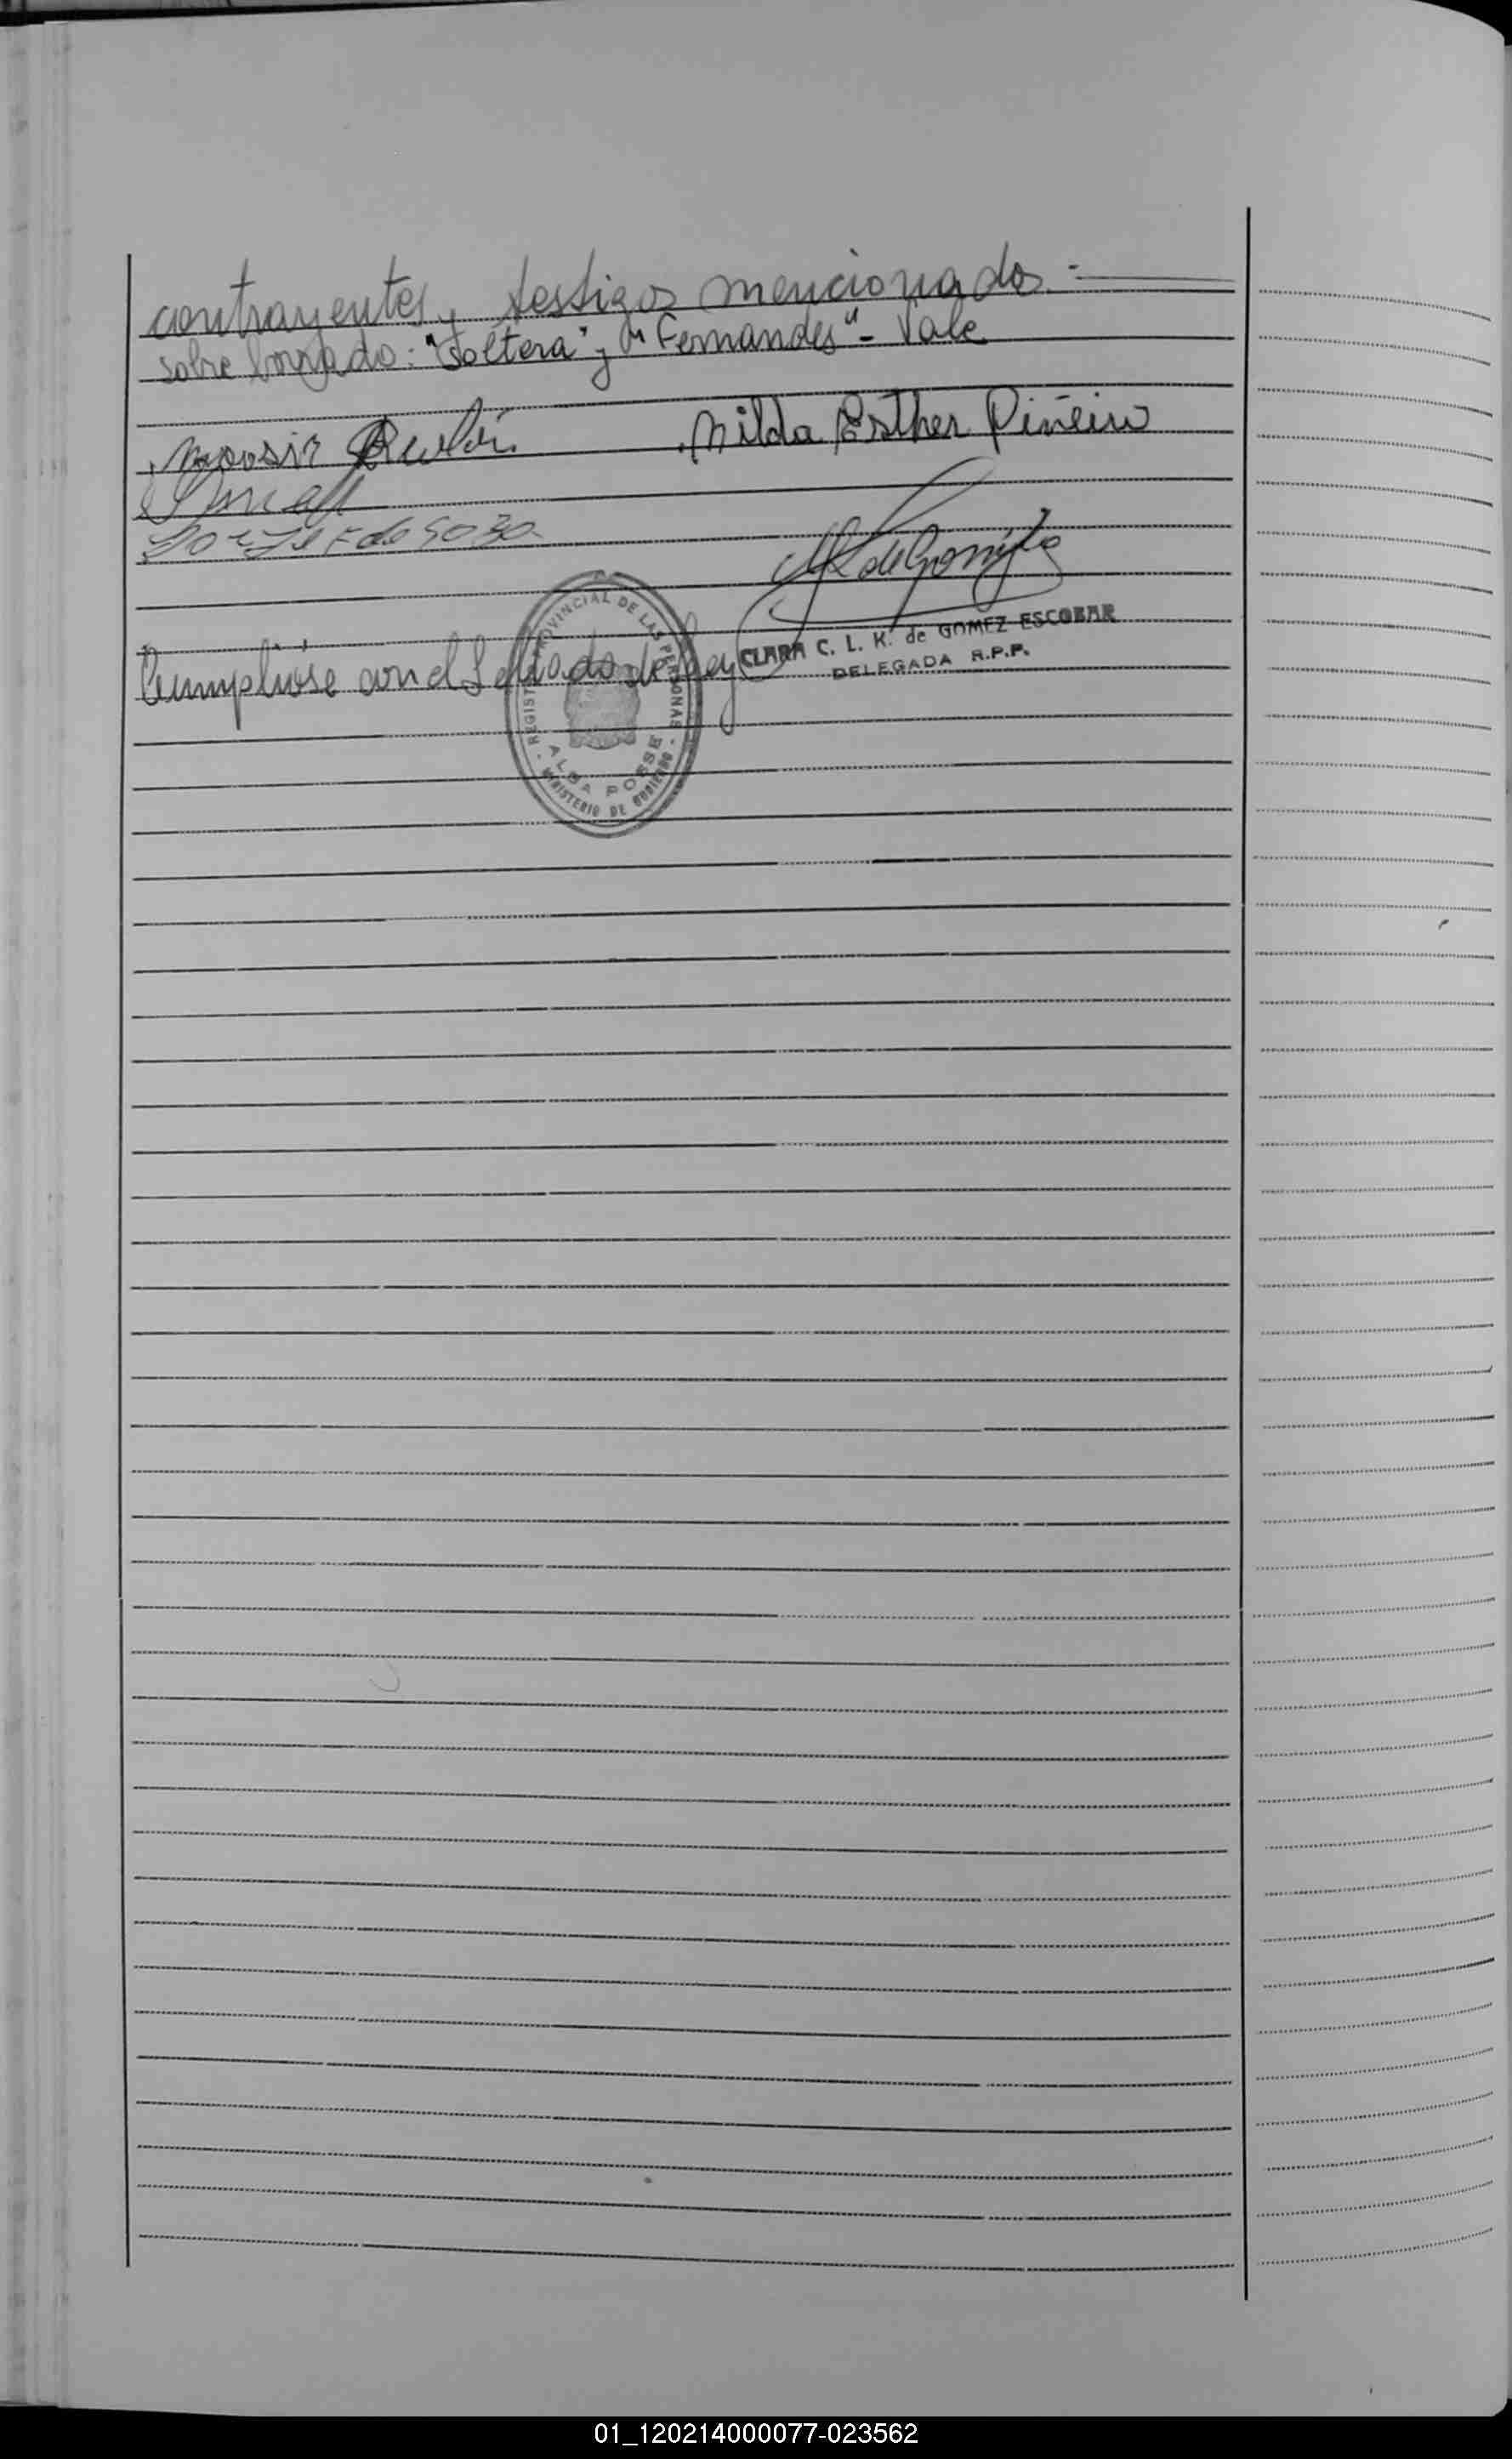 contrayentes y testigos mencionados.-
sobre borrado: "Soltera" y "Fernandes" - Vale
Nilda Esther Piñeiro
CLARA C. L. K. de GOMEZ ESCOBAR
DELEGADA R.P.P.
Cumplióse con el Sellado de Ley
REGISTRO PROVINCIAL DE LAS PERSONAS
ALBA POSSE
MINISTERIO DE GOBIERNO
01_120214000077-023562